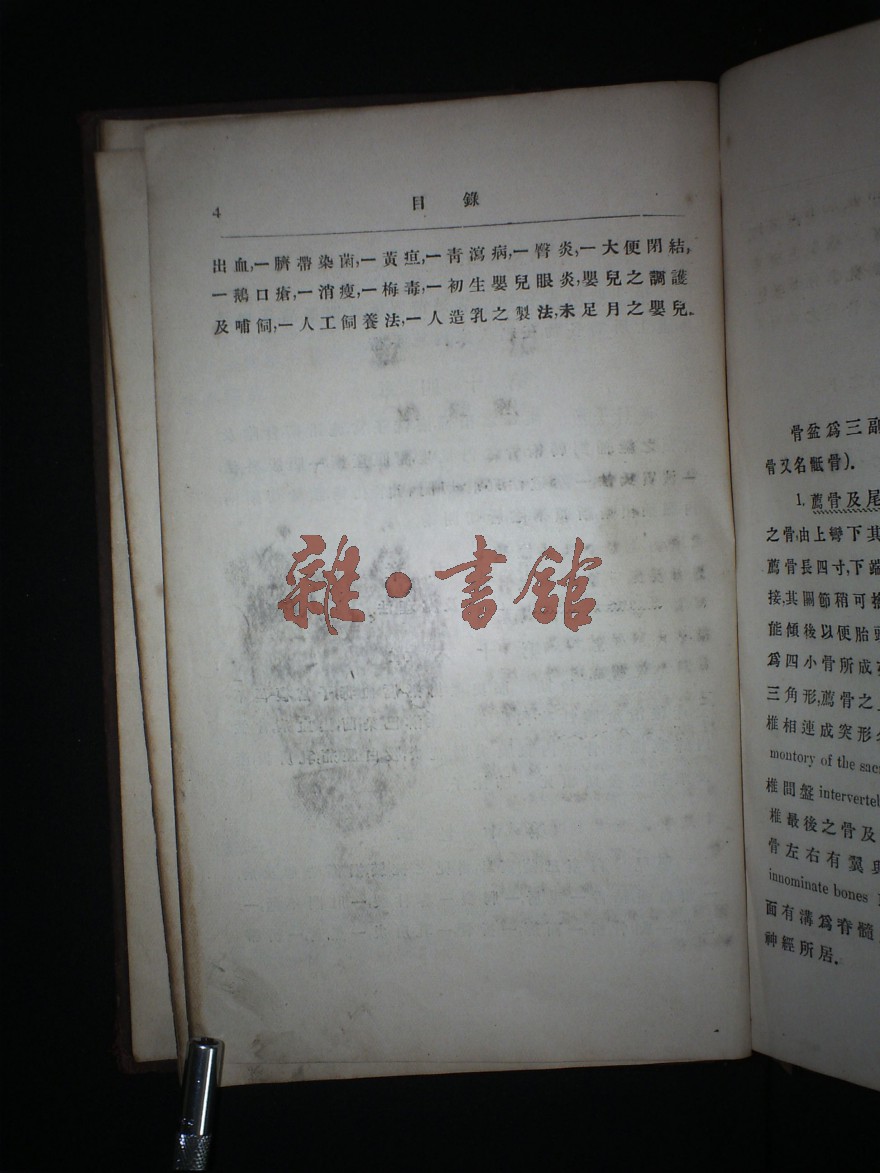 4
目錄
出血,一臍帶染菌,一黃疸,一靑瀉病,一臀炎,一大便閉結,
一鵝口瘡,一消瘦,一梅毒,一初生嬰兒眼炎,嬰兒之調護
及哺飼,一人工飼養法,一人造乳之製法,未足月之嬰兒.
雜·書館
骨盆爲三副
骨又名骶骨).
1. 薦骨及尾
之骨,由上彎下其
薦骨長四寸,下端
接,其關節稍可
能傾後以便胎頭
爲四小骨所成
三角形,薦骨之
椎相連成突形
montory of the sac
椎間盤 intervertel
椎最後之骨及
骨左右有翼與
innominate bones
面有溝爲脊髓
神經所居.